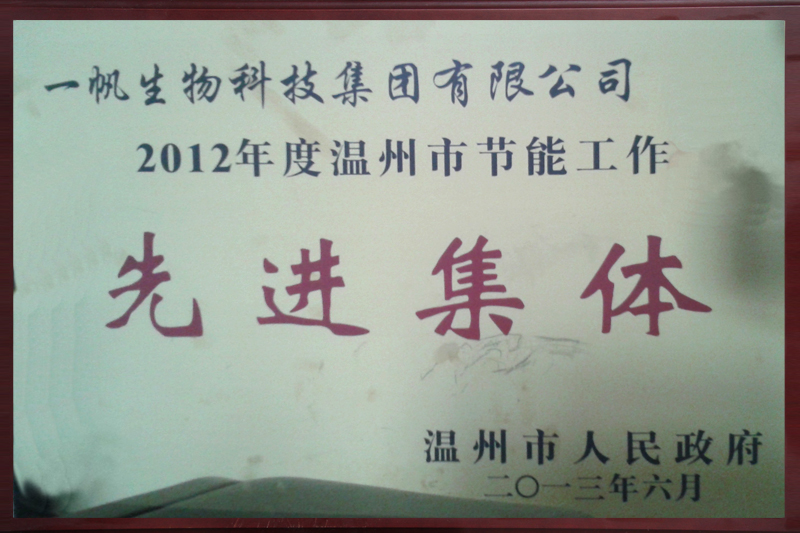 一帆生物科技集团有限公司
2012年度温州市节能工作
先进集体
温州市人民政府
二〇一三年六月